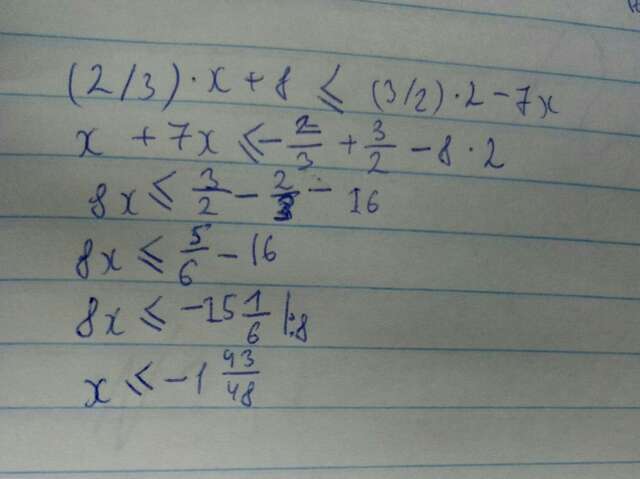 (2/3) · x + 8 ≤ (3/2) · 2 - 7x
x + 7x ≤ - 2/3 + 3/2 - 8 · 2
8x ≤ 3/2 - 2/3 - 16
8x ≤ 5/6 - 16
8x ≤ -15 1/6 |:8
x ≤ -1 43/48